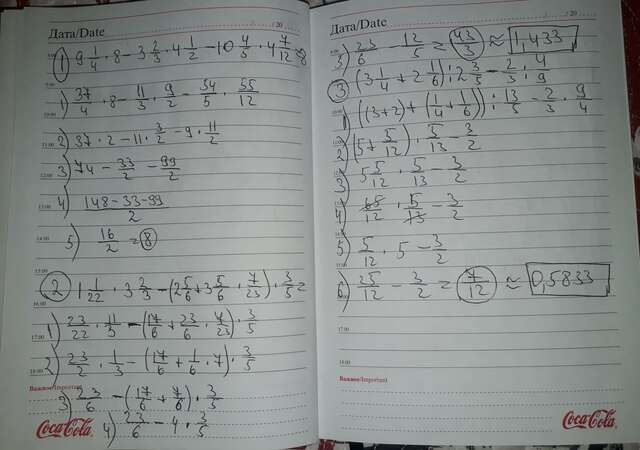 Дата/Date / 20
① 9 1/4 · 8 - 3 2/3 · 4 1/2 - 10 4/5 · 4 7/12 = 8
1) 37/4 · 8 - 11/3 · 9/2 - 54/5 · 55/12
2) 37 · 2 - 11 · 3/2 - 9 · 11/2
3) 74 - 33/2 - 99/2
4) (148-33-99)/2
5) 16/2 = 8
② 1 1/22 · 3 2/3 - (2 5/6 + 3 5/6 · 7/23) · 3/5 =
1) 23/22 · 11/3 - (17/6 + 23/6 · 7/23) · 3/5
2) 23/2 · 1/3 - (17/6 + 1/6 · 7) · 3/5
3) 23/6 - (17/6 + 7/6) · 3/5
4) 23/6 - 4 · 3/5
Важно/Important
Coca-Cola
Дата/Date / 20
5) 23/6 - 12/5 = 43/3 ≈ 1,433
③ (3 1/4 + 2 1/6) : 2 3/5 - 2/3 : 4/9
1) ((3+2) + (1/4 + 1/6)) : 13/5 - 2/3 · 9/4
2) (5 + 5/12) · 5/13 - 3/2
3) 5 5/12 · 5/13 - 3/2
4) 65/12 · 5/13 - 3/2
5) 5/12 · 5 - 3/2
6) 25/12 - 3/2 = 7/12 ≈ 0,5833
Важное/Important
Coca-Cola